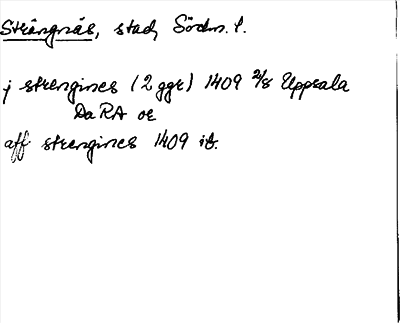 Strängnäs, stad, Södm. l.
j strengines (2 ggr) 1409 2/8 Uppsala
Da RA or
aff strengines 1409 ib.